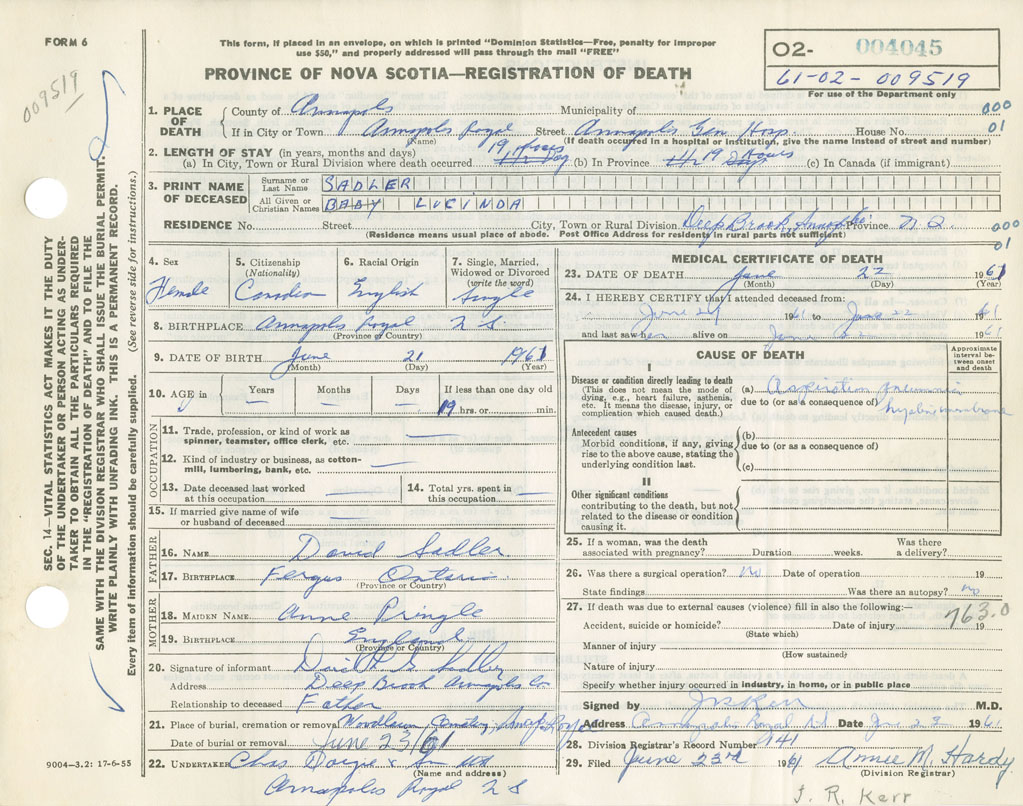 FORM 6
This form, if placed in an envelope, on which is printed "Dominion Statistics—Free, penalty for improper
use $50," and properly addressed will pass through the mail "FREE"
PROVINCE OF NOVA SCOTIA—REGISTRATION OF DEATH
O2- 004045
61-02-009519
For use of the Department only
009519
SEC. 14—VITAL STATISTICS ACT MAKES IT THE DUTY
OF THE UNDERTAKER OR PERSON ACTING AS UNDER-
TAKER TO OBTAIN ALL THE PARTICULARS REQUIRED
IN THE "REGISTRATION OF DEATH" AND TO FILE THE
SAME WITH THE DIVISION REGISTRAR WHO SHALL ISSUE THE BURIAL PERMIT.
WRITE PLAINLY WITH UNFADING INK. THIS IS A PERMANENT RECORD.
Every item of information should be carefully supplied. (See reverse side for instructions.)
1. PLACE OF DEATH
County of Annapolis Municipality of 000
If in City or Town Annapolis Royal Street Annapolis Gen Hosp. House No. 01
(Name) (If death occurred in a hospital or institution, give the name instead of street and number)
2. LENGTH OF STAY (in years, months and days)
(a) In City, Town or Rural Division where death occurred 19 Hours (b) In Province 19 Hours (c) In Canada (if immigrant)
3. PRINT NAME OF DECEASED
Surname or Last Name SADLER
All Given or Christian Names BABY LUCINDA
RESIDENCE No. Street City, Town or Rural Division Deep Brook, Annap Co. Province N S 000
(Residence means usual place of abode. Post Office Address for residents in rural parts not sufficient) 01
4. Sex Female
5. Citizenship (Nationality) Canadian
6. Racial Origin English
7. Single, Married, Widowed or Divorced (write the word) Single
8. BIRTHPLACE Annapolis Royal N S
(Province or Country)
9. DATE OF BIRTH June 21 1961
(Month) (Day) (Year)
10. AGE in Years — Months — Days — If less than one day old 19 hrs. or min.
OCCUPATION
11. Trade, profession, or kind of work as spinner, teamster, office clerk, etc. —
12. Kind of industry or business, as cotton-mill, lumbering, bank, etc. —
13. Date deceased last worked at this occupation —
14. Total yrs. spent in this occupation —
15. If married give name of wife or husband of deceased —
FATHER
16. NAME David Sadler
17. BIRTHPLACE Fergus Ontario
(Province or Country)
MOTHER
18. MAIDEN NAME Anne Pringle
19. BIRTHPLACE England
(Province or Country)
20. Signature of informant David Sadler
Address Deep Brook Annapolis Co
Relationship to deceased Father
21. Place of burial, cremation or removal Woodlawn Cemetery, Annap Royal
Date of burial or removal June 23/61
22. UNDERTAKER Chas & Son Ltd
(Name and address)
Annapolis Royal N S
9004—3.2: 17-6-55
MEDICAL CERTIFICATE OF DEATH
23. DATE OF DEATH June 22 1961
(Month) (Day) (Year)
24. I HEREBY CERTIFY that I attended deceased from:
June 21 1961 to June 22 1961
and last saw her alive on June 22 1961
CAUSE OF DEATH
Approximate interval between onset and death
I
Disease or condition directly leading to death
(This does not mean the mode of dying, e.g., heart failure, asthenia, etc. It means the disease, injury, or complication which caused death.)
(a) Aspiration pneumonia
due to (or as a consequence of) hyaline membrane
Antecedent causes
Morbid conditions, if any, giving rise to the above cause, stating the underlying condition last.
(b)
due to (or as a consequence of)
(c)
II
Other significant conditions
contributing to the death, but not related to the disease or condition causing it.
25. If a woman, was the death associated with pregnancy? Duration weeks. Was there a delivery?
26. Was there a surgical operation? no Date of operation 19
State findings Was there an autopsy? no
27. If death was due to external causes (violence) fill in also the following:— 763.0
Accident, suicide or homicide? Date of injury 19
(State which)
Manner of injury
(How sustained)
Nature of injury
Specify whether injury occurred in industry, in home, or in public place
Signed by J R Kerr M.D.
Address Annapolis Royal NS Date June 23 1961
28. Division Registrar's Record Number 141
29. Filed June 23rd 1961 Annie M. Hardy
(Division Registrar)
J. R. Kerr